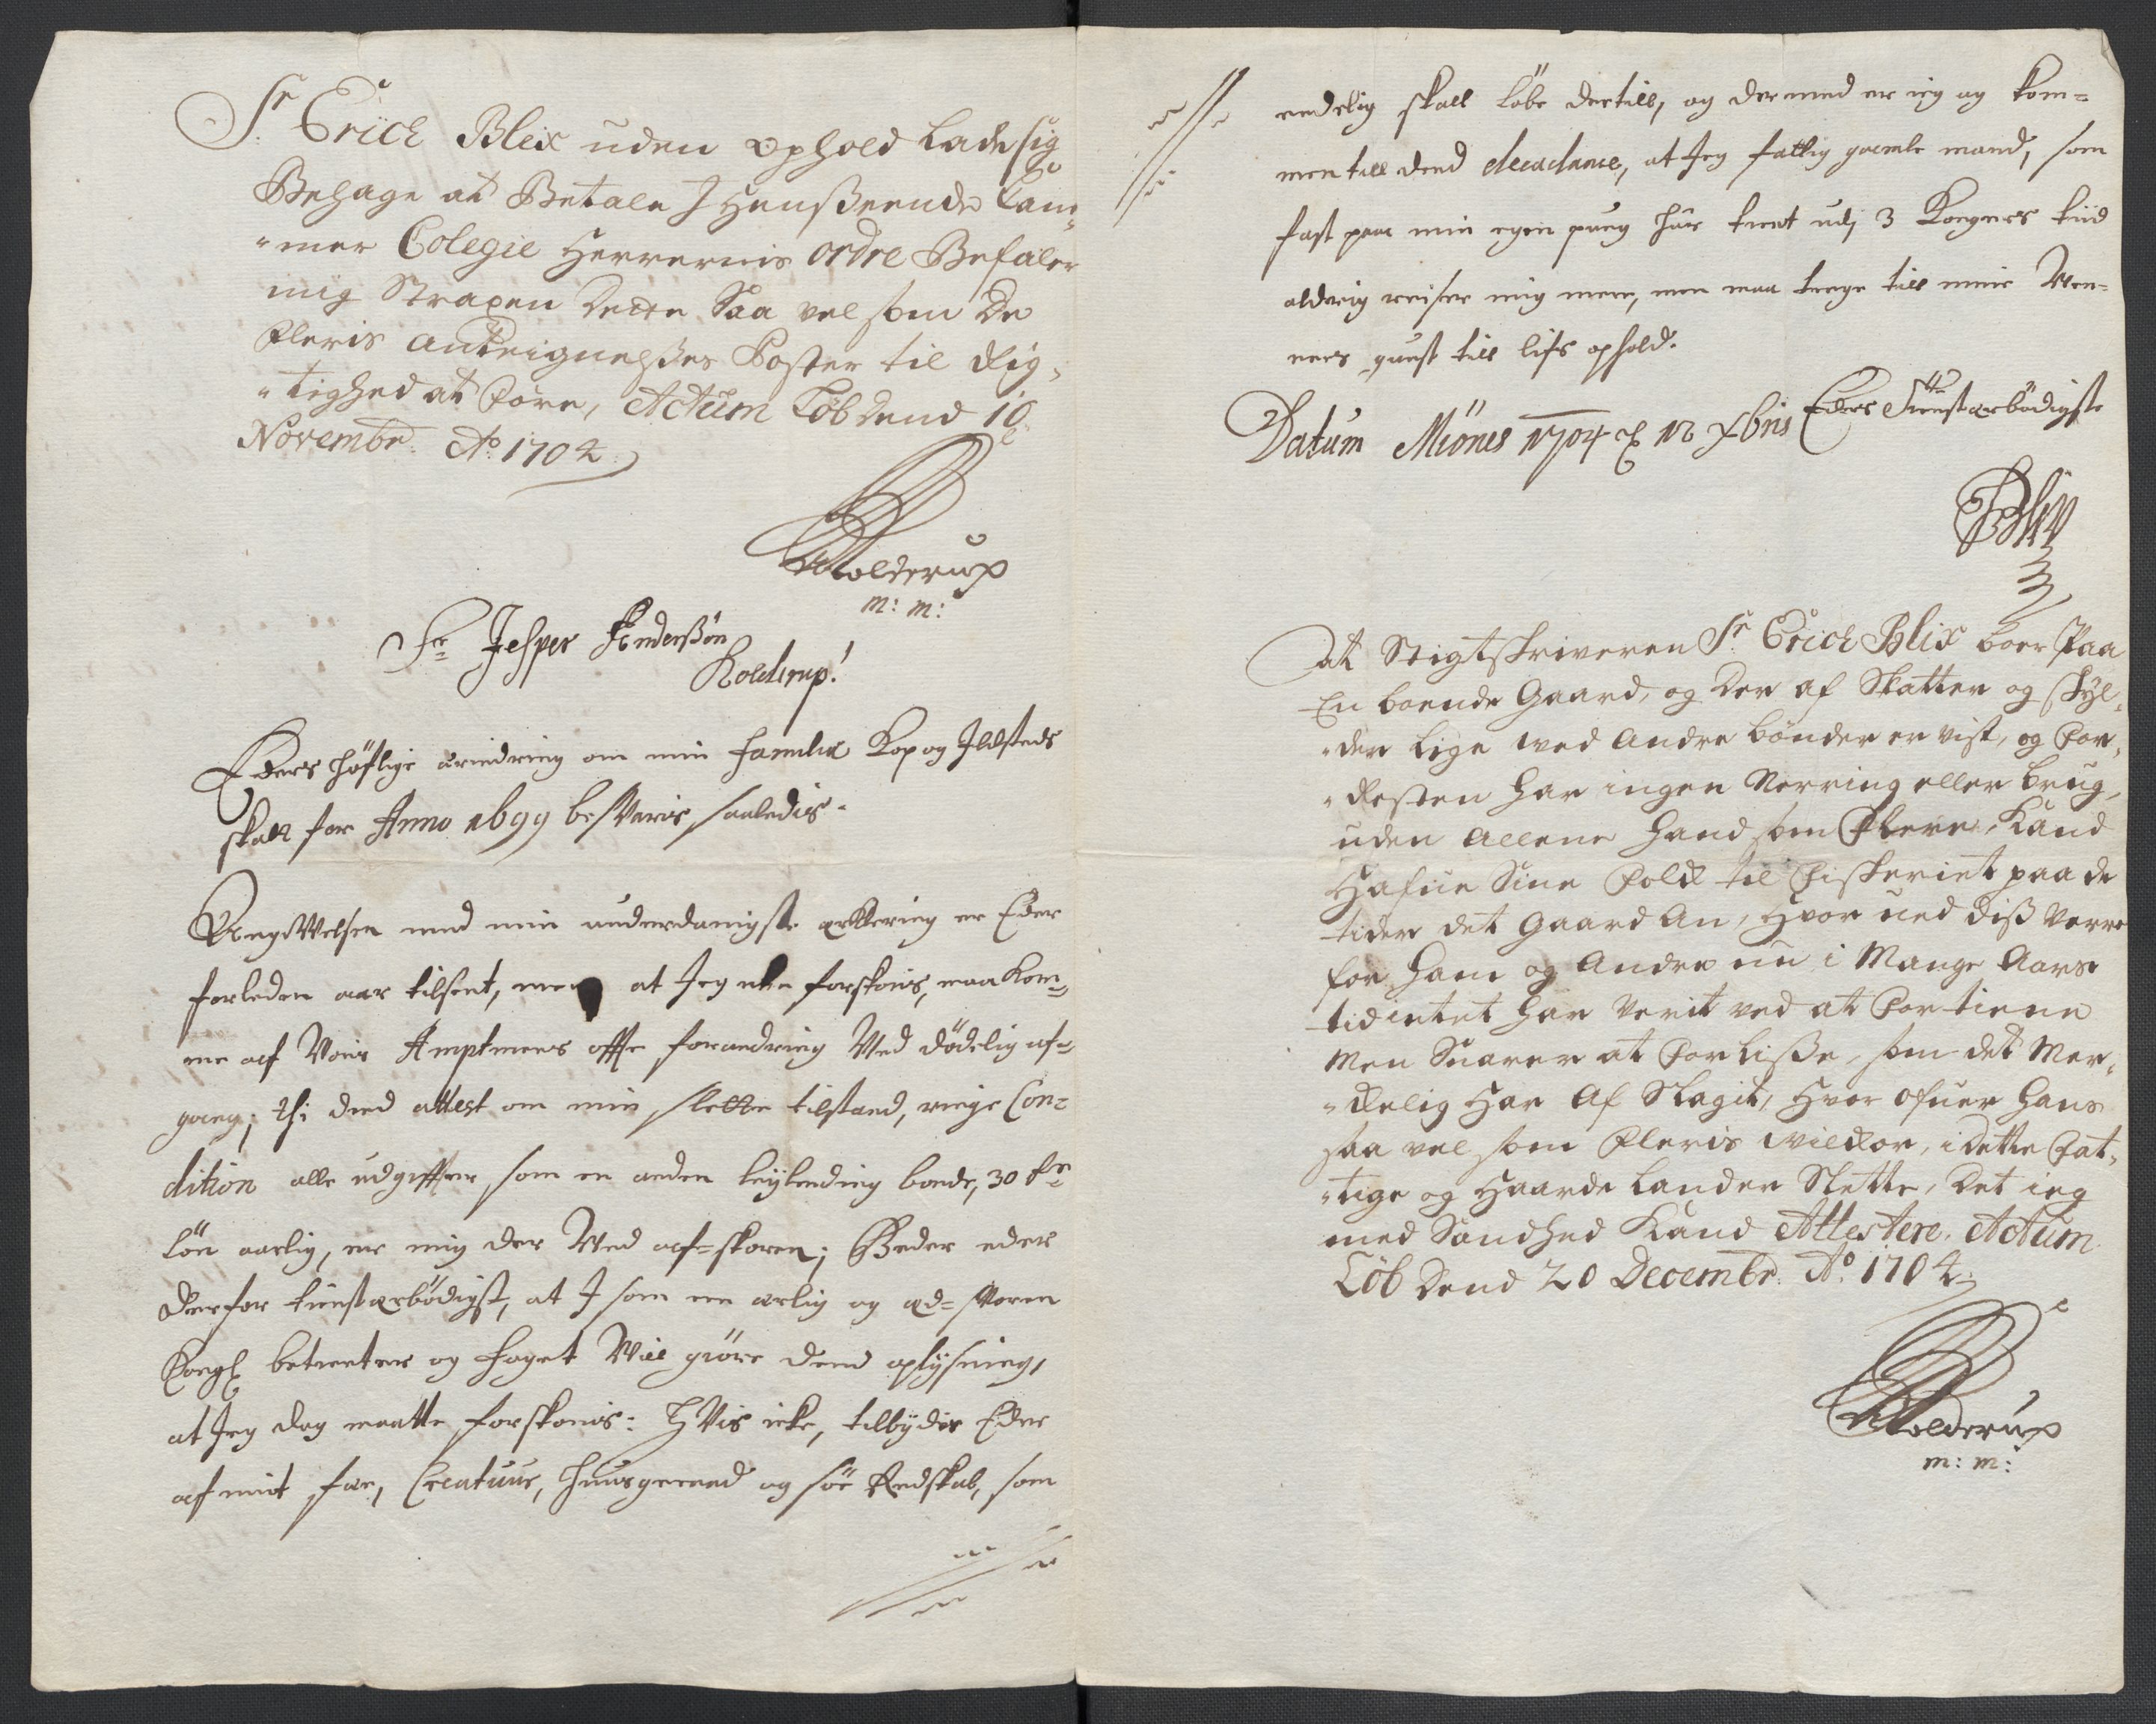 Sr. Erich Blix uden Ophold lade sig
Behage at Betale J Hensseende Cam¬
"mer Colegie Herrernis Ordre Befaler
mig Straxen Dette Saa vel som De
fleris Anteignelsses Poster til Rig¬
"tighed at føre, Actum Løb Dend 10
Novembr. Ao. 1704
Kolderup
m: m:
Sr Jesper Anderssøn
Kolderup!
Eders höflige erindring om min familie Kop og Jldsteds
skatt for Anno 1699 besvaris saaledis.
med min underdanigste erklering er Eder
forleden aar tilsent, men at Jeg icke forskonis, maa kom¬
me af Voris Amptmens offte forandring Ved dödelig af¬
gang; thi dend attest om min slette tilstand, ringe Con¬
dition alle udgiffter, som en anden leylending bonde, 30 dr
lön aarlig, er mig der Ved af-skoren; Beder eder
derfor tienstærbödigst, at J som en ærlig og æd-svoren
Kongl betienter og foget Vill giöre dend oplysning,
at Jeg dog maatte forskonis: Hvis icke, tilbydis Eder
af mit fæ, Creatuur, huusgeraad og söe Redskab, som
endelig skall löbe dertill, og dermed er ieg og kom¬
men till dend decadance, at Jeg fattig gamle mand, som
fast paa min egen pung har tient udj 3 Kongers tiid
aldrig reiser mig mere, men maa trenge till mine Ven¬
ners gunst till lifs ophold.
Datum Miönes 1704 d 18 xbris Eders Tienstærbödigste
EBlix
At Stigtskriveren Sr. Erich Blix boer Paa
En bonde Gaard, og Der af Skatter og Skyl¬
"der lige ved Andre bønder er vist, og for¬
"Resten har ingen Nerring eller brug,
uden Allene hand som flere, Kand
Hafue Sine folk til fiskeriet paa de
tider det Gaard An, Hvor ued diss Verre
for ham og Andre nu i Mange Aars
tid intet har Verit ved at fortiene
Men Snarer at forlisse, som det Mer¬
"kelig Har Af Slagit, Hvor ofuer hans
saa vel som fleris Vilkor, i dette fat¬
"tige og Haarde Landen Slette, Det ieg
med Sandhed Kand Attestere. Actum
Løb Dend 20 Decembr. Ao. 1704
Kolderup
m: m: